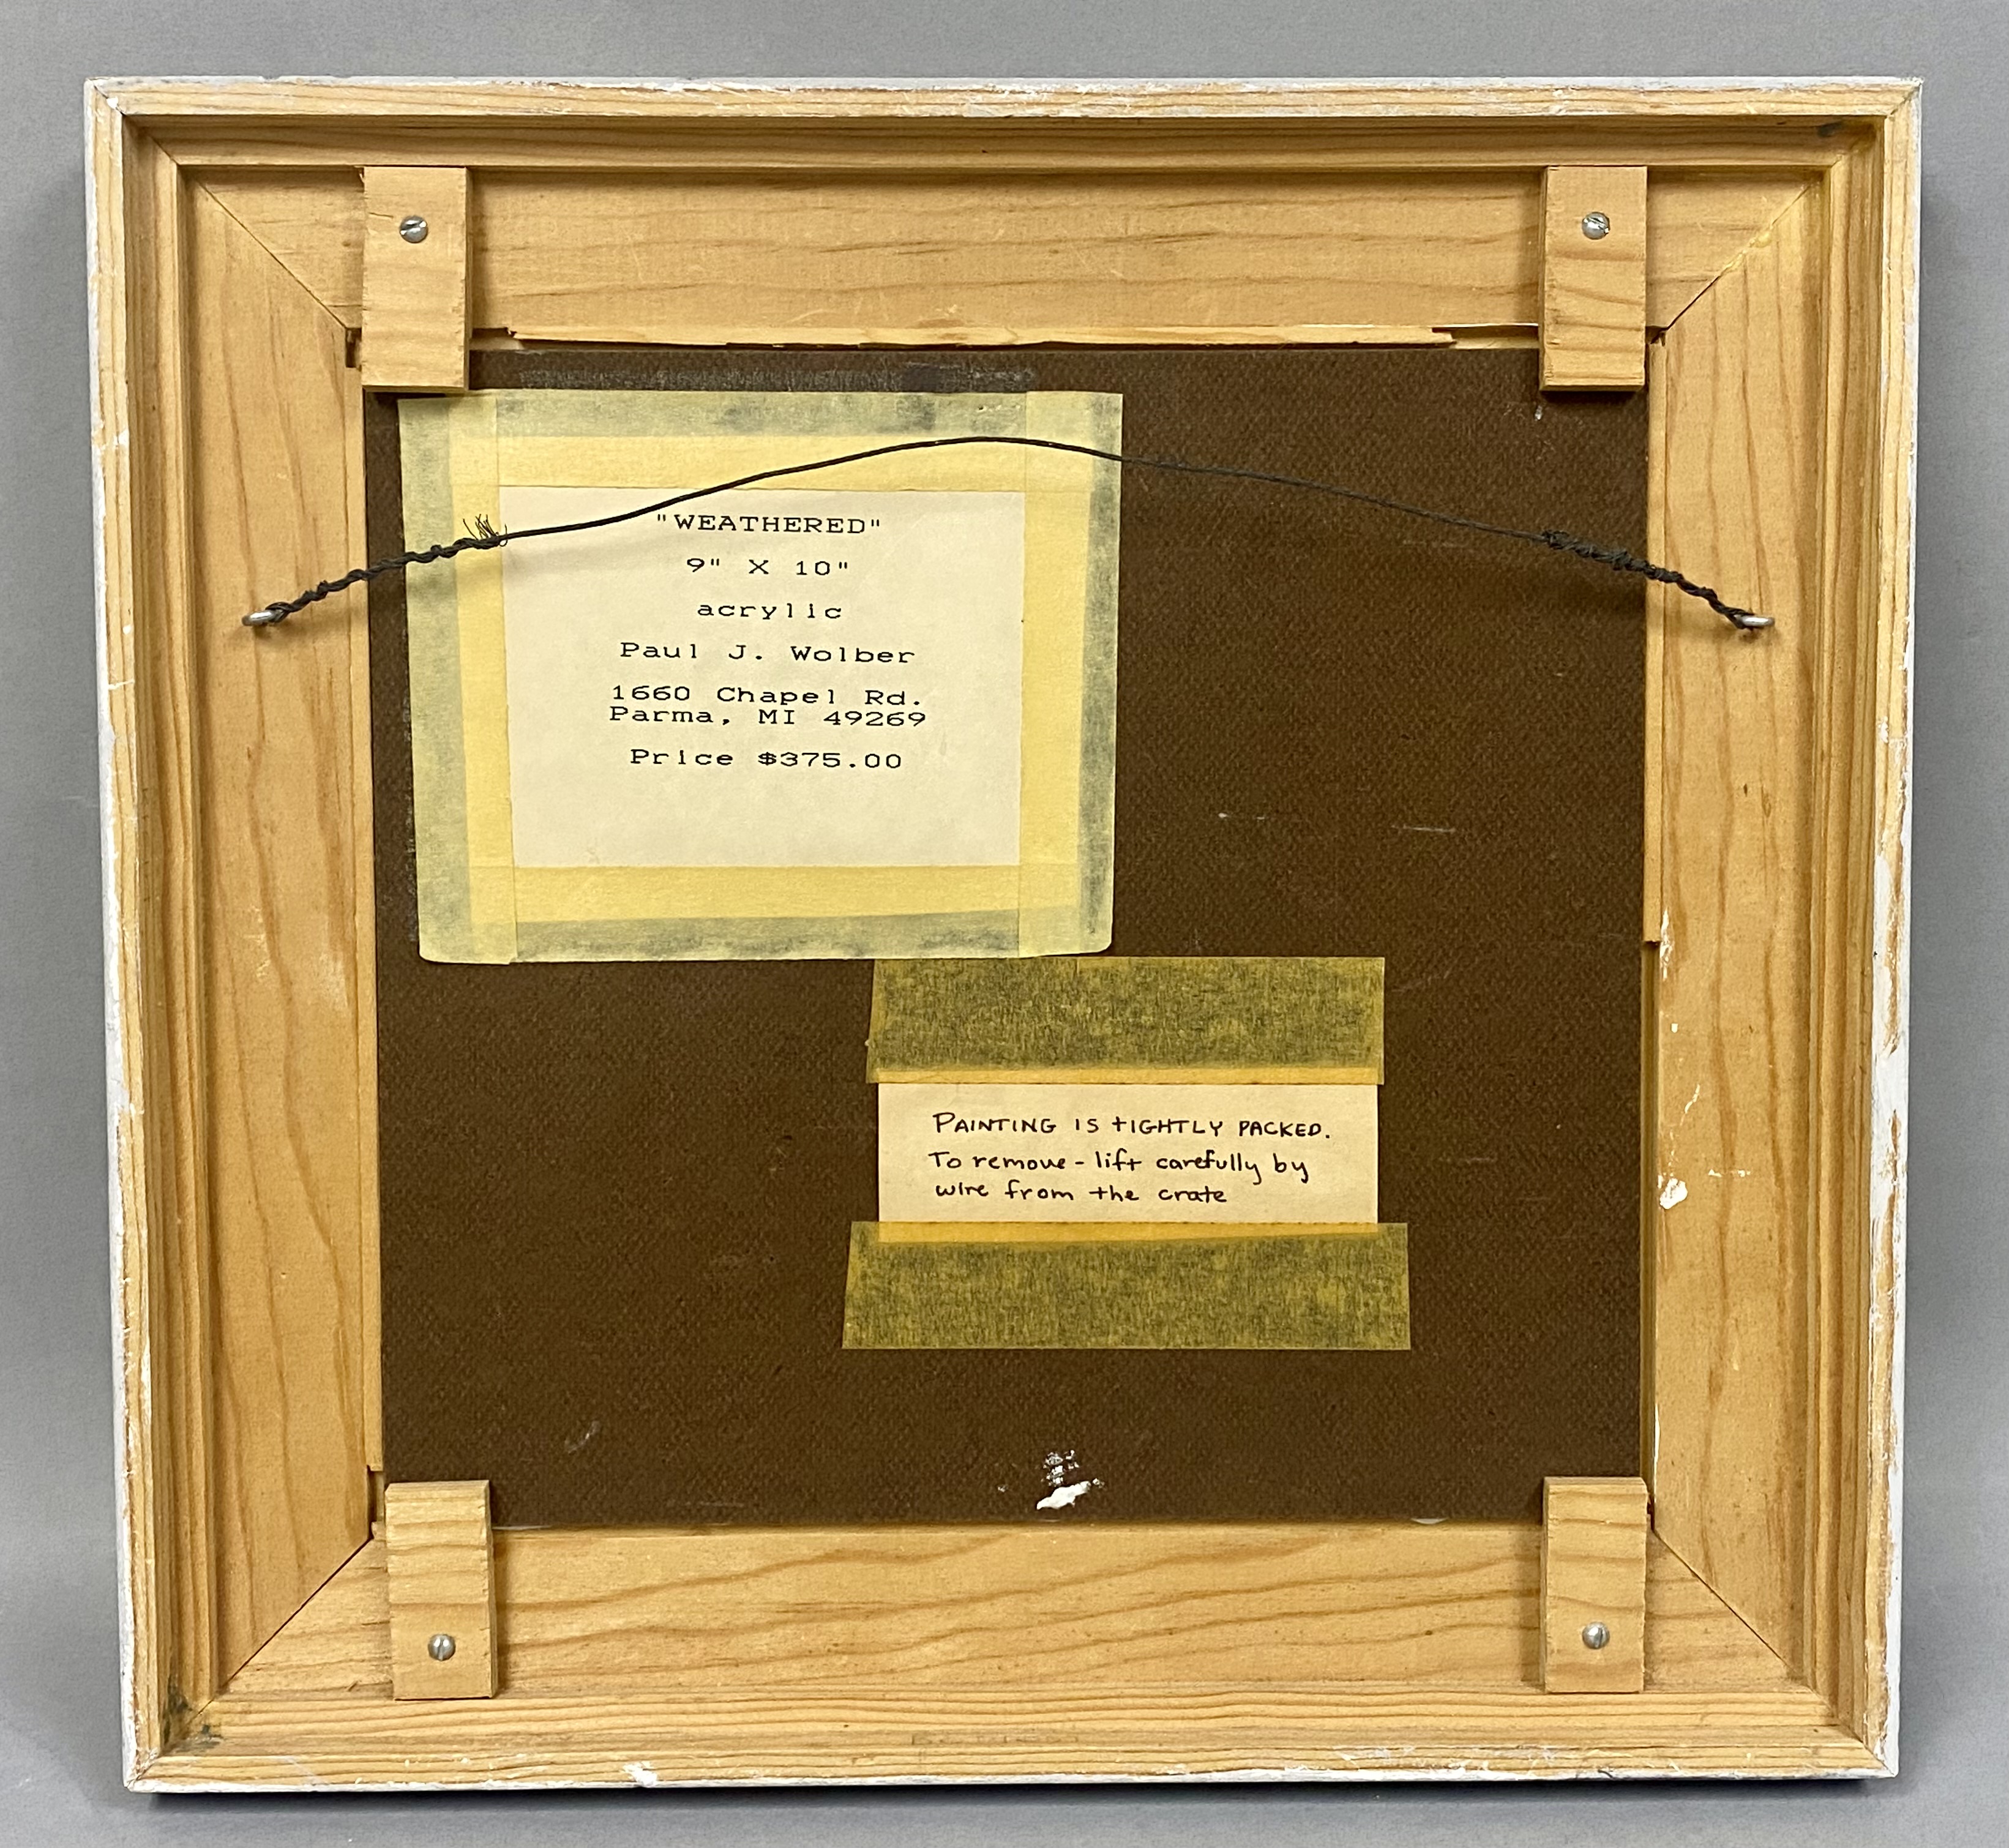 "WEATHERED"
9" X 10"
acrylic
Paul J. Wolber
1660 Chapel Rd.
Parma, MI 49269
Price $375.00
PAINTING IS tIGHTLY PACKED.
To remove - lift carefully by
wire from the crate